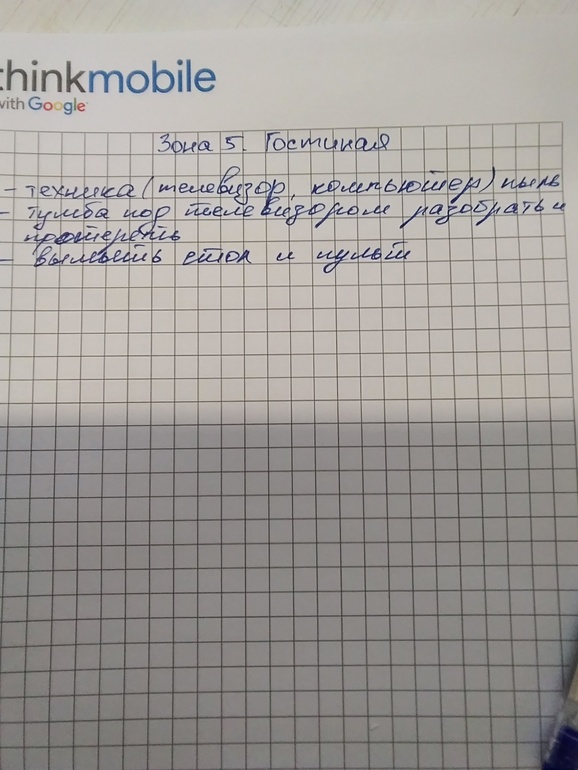 thinkmobile
with Google
Зона 5. Гостиная
- техника (телевизор, компьютер) пыль
- тумба под телевизором разобрать и
протереть
- вымыть стол и пульт